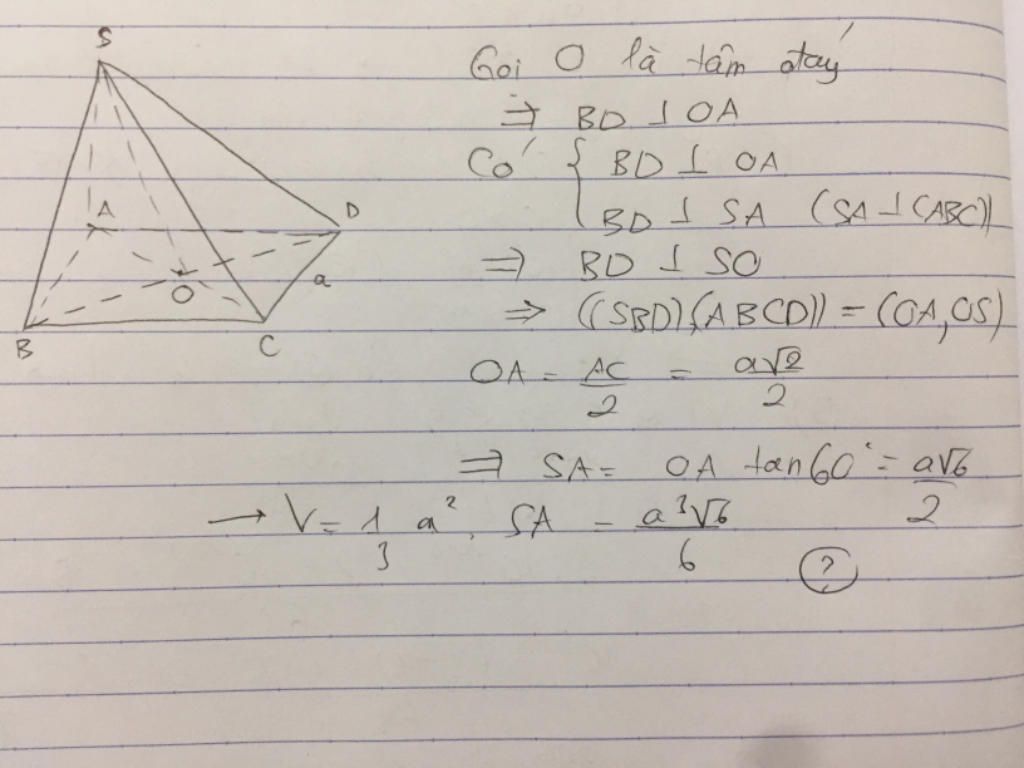 S
A
D
a
O
B
C
Gọi O là tâm đáy
⇒ BD ⊥ OA
Có { BD ⊥ OA
BD ⊥ SA (SA ⊥ (ABC))
⇒ BD ⊥ SO
⇒ ((SBD),(ABCD)) = (OA,OS)
OA = AC/2 = a√2/2
⇒ SA = OA tan60° = a√6/2
→ V = 1/3 a². SA = a³√6/6
?